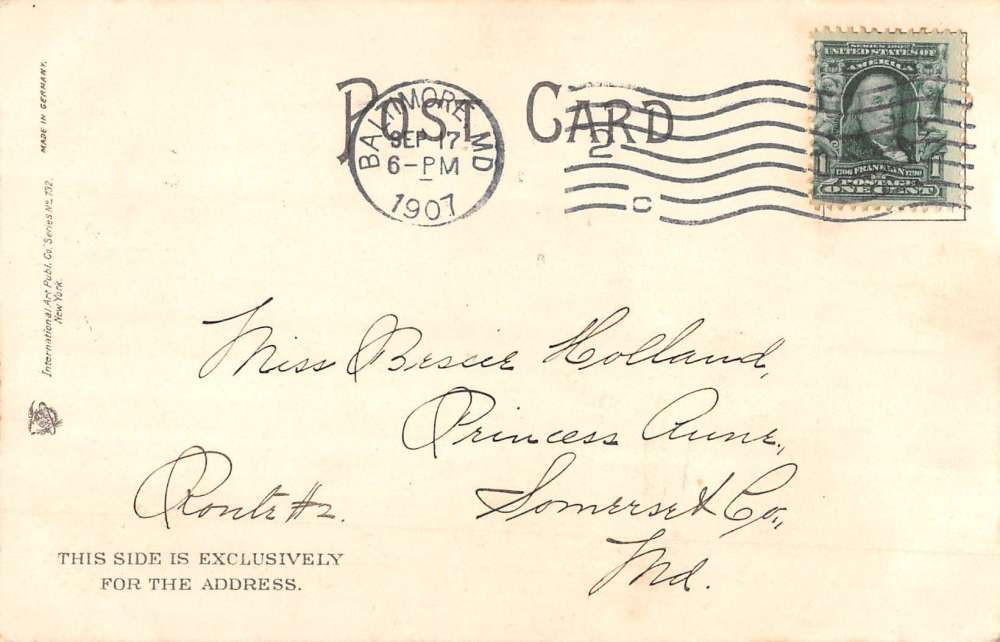 MADE IN GERMANY.
International Art Publ. Co. Series No. 732.
New York.
POST CARD
BALTIMORE, MD
SEP 17
6-PM
1907
2
C
SERIES 1902
UNITED STATES OF
AMERICA
1 1706 FRANKLIN 1790 1
POSTAGE
ONE CENT
Miss Bessie Holland,
Princess Anne,
Route #2. Somerset Co.,
Md.
THIS SIDE IS EXCLUSIVELY
FOR THE ADDRESS.